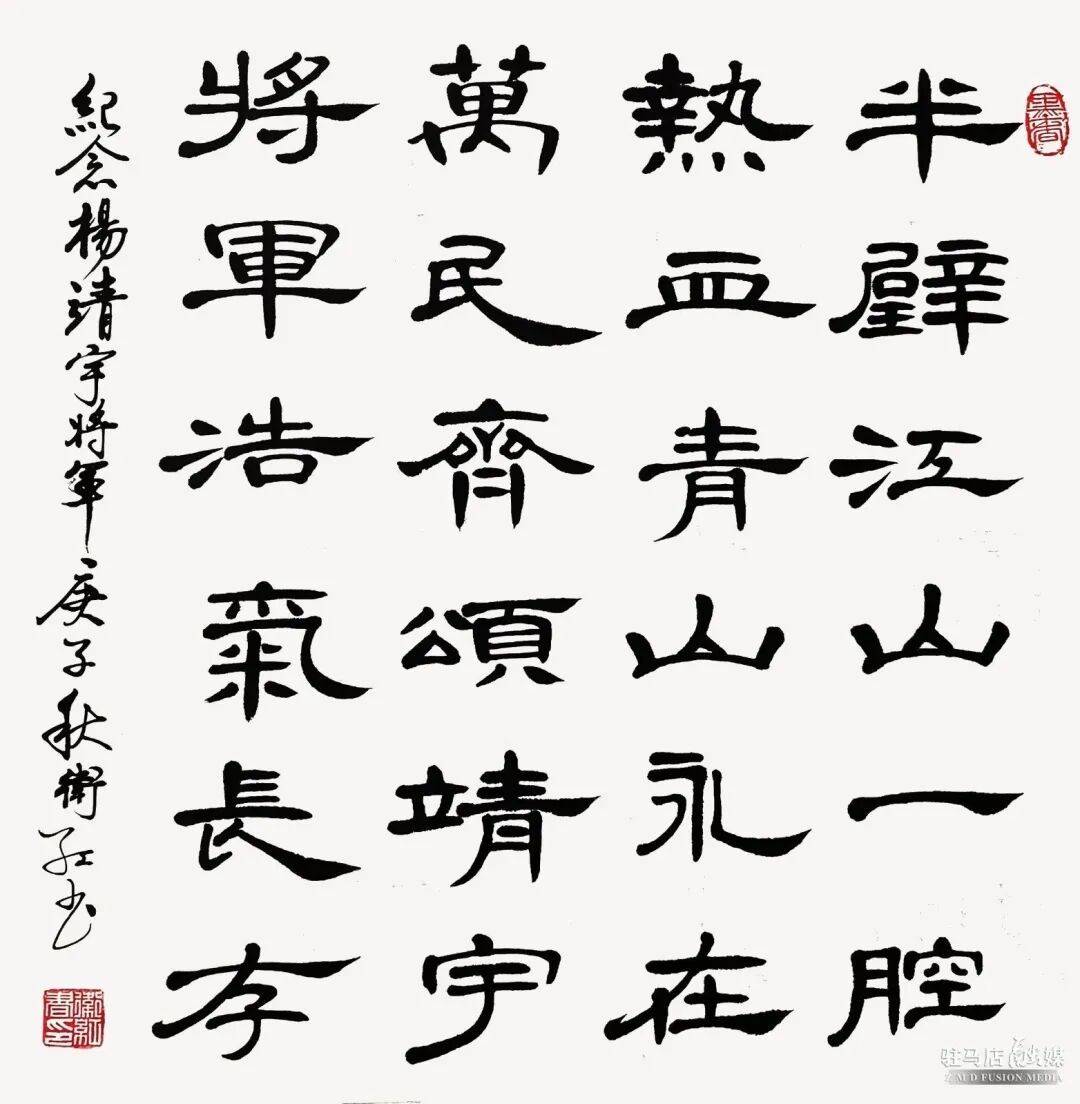 半壁江山一腔
熱血青山永在
萬民齊頌靖宇
將軍浩氣長存
紀念楊靖宇將軍庚子秋衛红书
墨香
衛紅書印
驻马店融媒
ZMD FUSION MEDIA